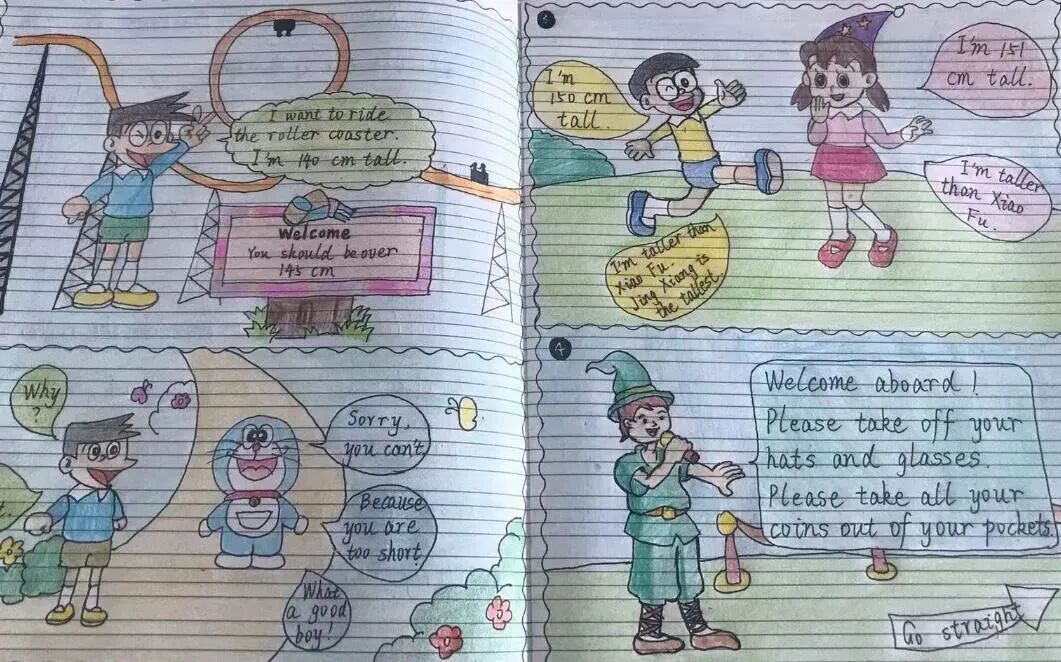 I want to ride
the roller coaster.
I'm 140 cm tall.
Welcome
You should be over
145 cm
Why
?
Sorry,
you can't
Because
you are
too short
What
a good
boy!
I'm
150 cm
tall.
I'm 151
cm tall.
I'm taller
than Xiao
Fu.
I'm taller than
Xiao Fu.
Jing Xiang is
the tallest.
4
Welcome aboard!
Please take off your
hats and glasses.
Please take all your
coins out of your pockets.
Go straight